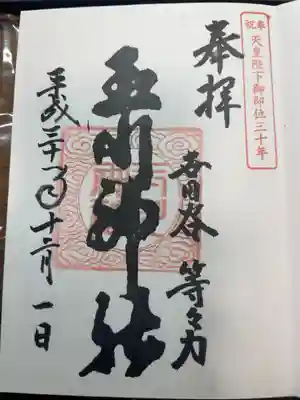 奉祝
天皇陛下御即位三十年
奉拝
世田谷 等々力
玉川神社
平成三十年十二月一日